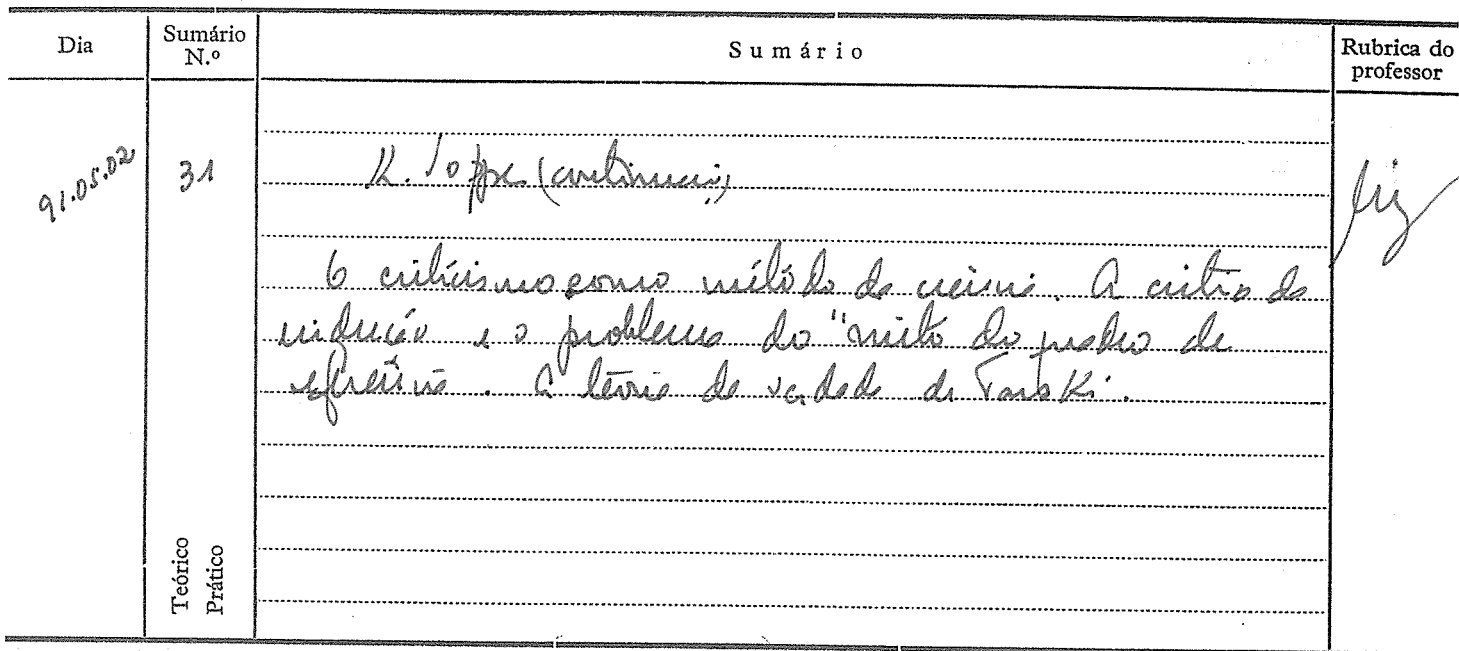 Dia
Sumário N.º
Sumário
Rubrica do professor
91.05.02
31
K. Popper (continuação)
O criticismo como método da ciência. A crítica da
indução e o problema do "mito do quadro de
referência. A teoria da verdade de Tarski.
Teórico
Prático